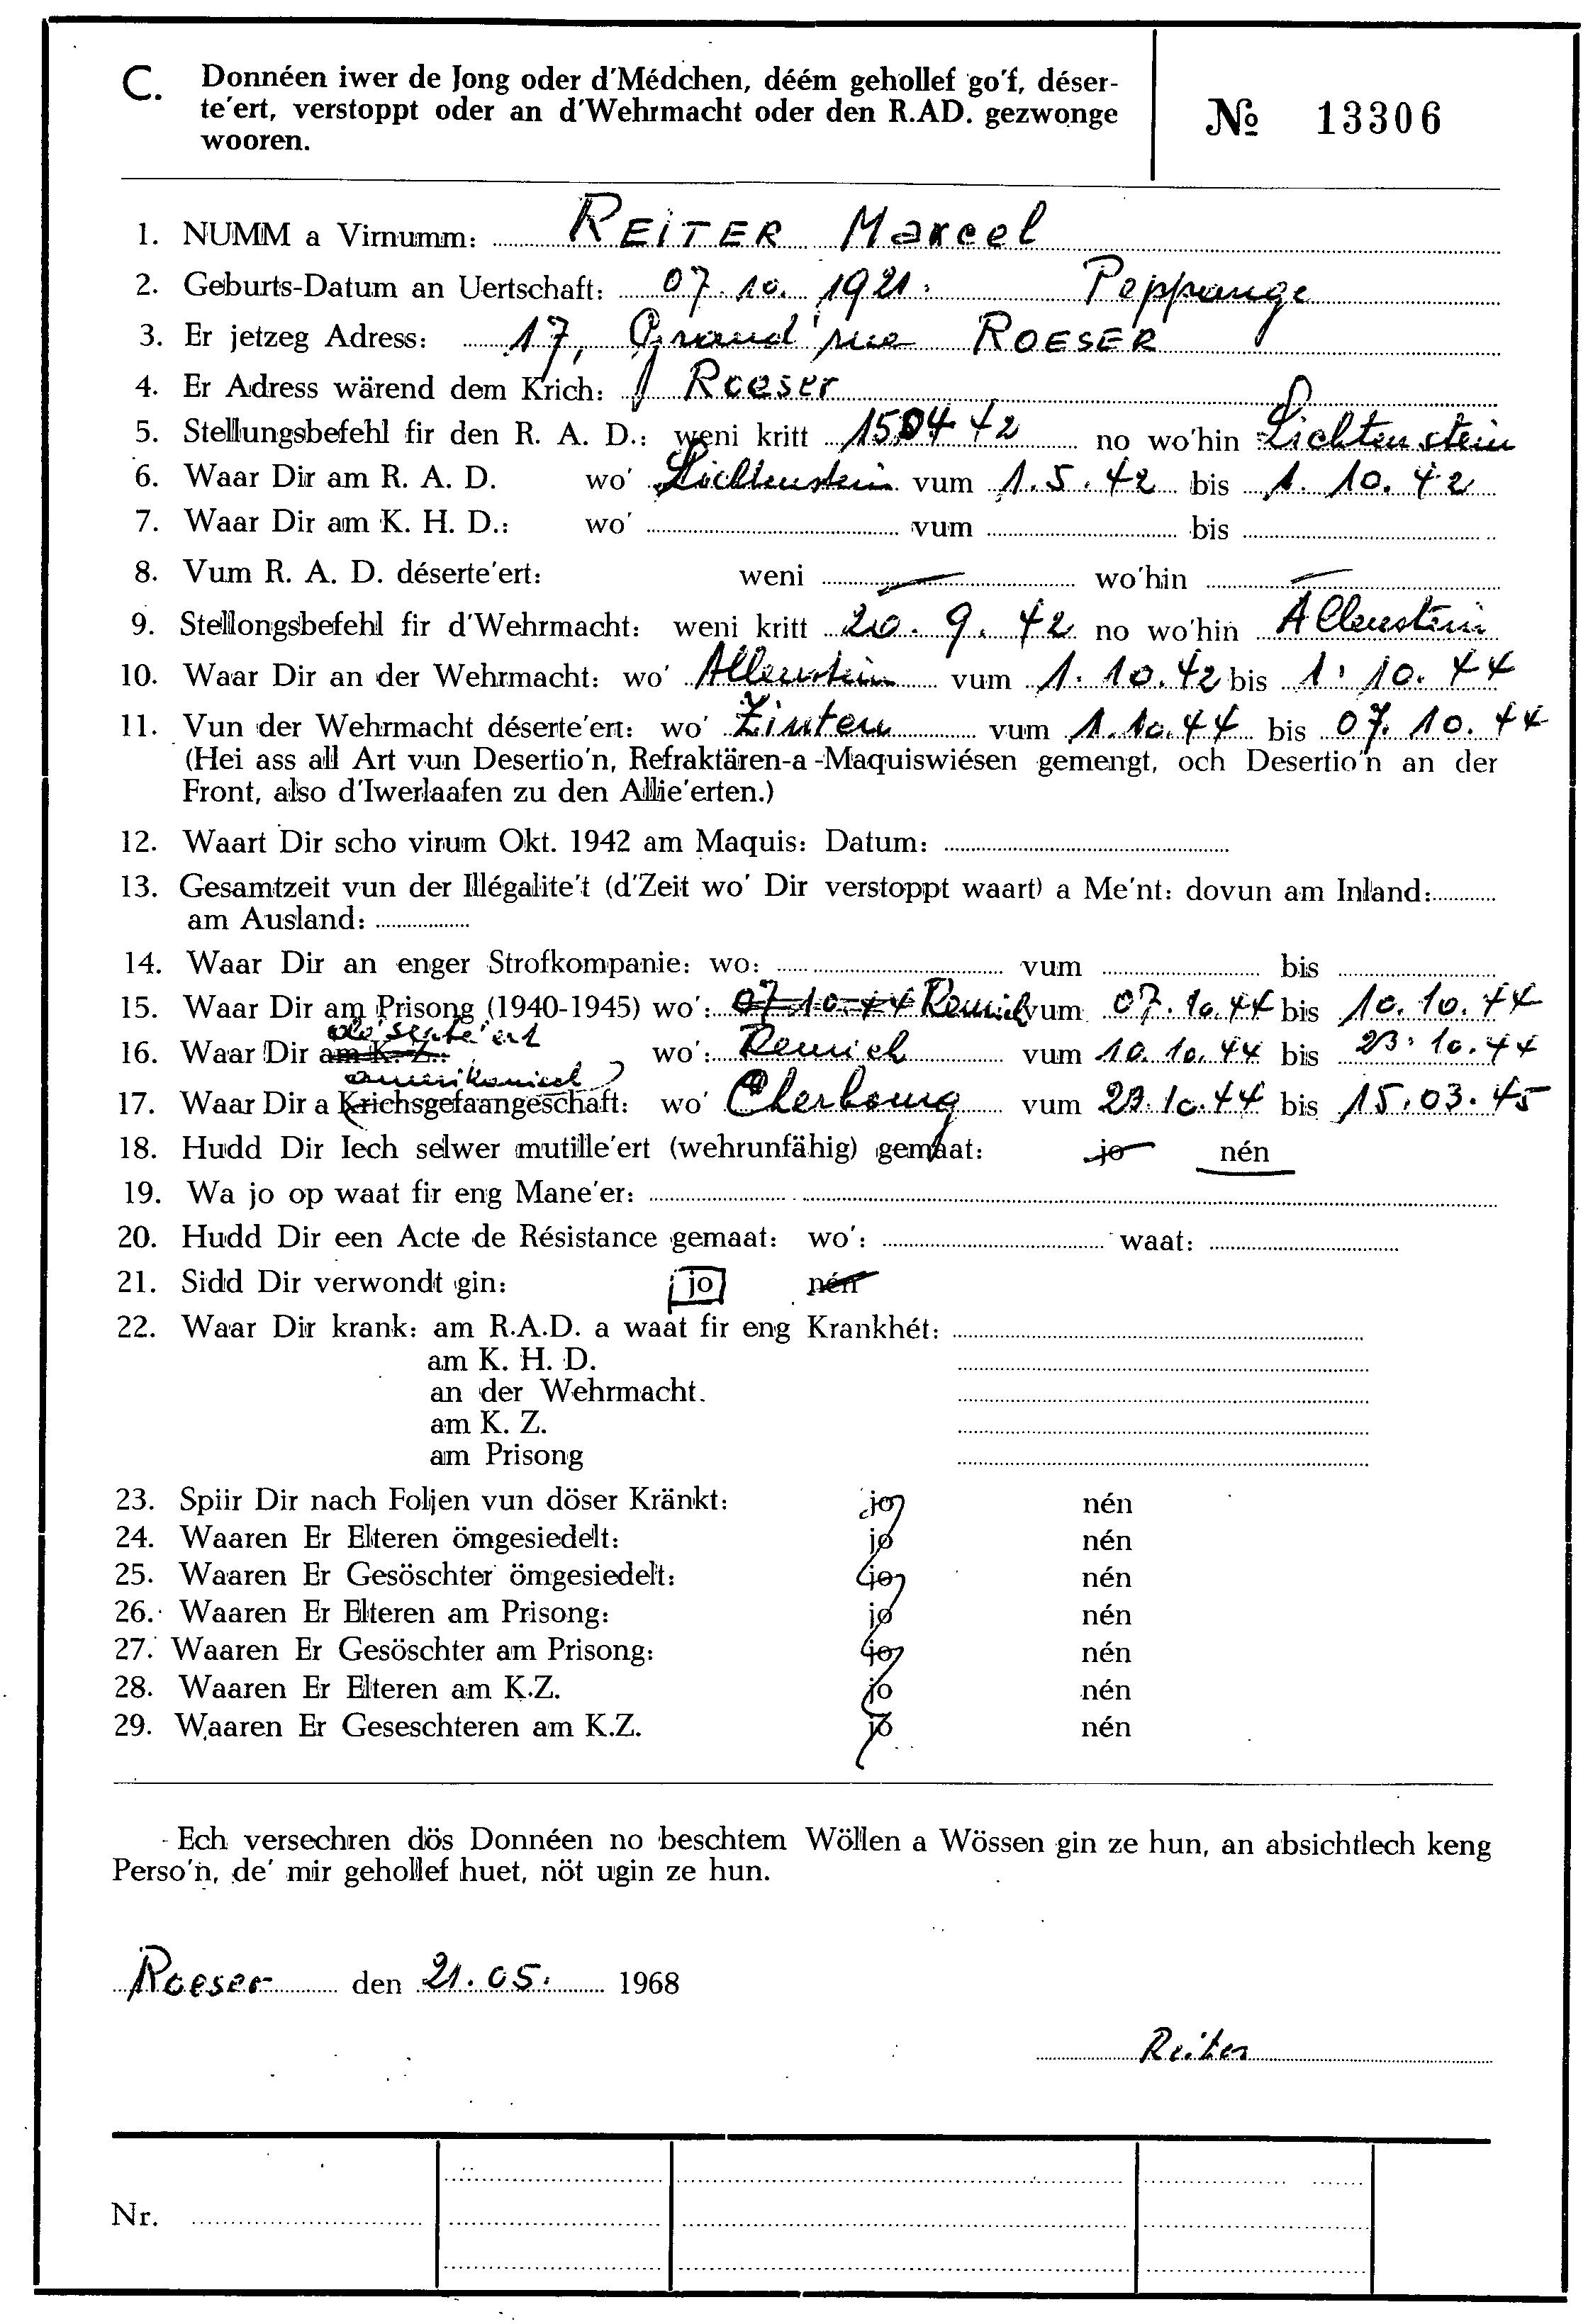 C. Donnéen iwer de Jong oder d'Médchen, déém gehollef go'f, déser-
te'ert, verstoppt oder an d'Wehrmacht oder den R.AD. gezwonge
wooren.
№ 13306
1. NUMM a Virnumm: REITER Marcel
2. Geburts-Datum an Uertschaft: 07.10.1921. Peppange
3. Er jetzeg Adress: 17, Grand'rue ROESER
4. Er Adress wärend dem Krich: Roeser
5. Stellungsbefehl fir den R. A. D.: weni kritt 15.04.42 no wo'hin Lichtenstein
6. Waar Dir am R. A. D. wo' Lichtenstein vum 1.5.42 bis 1.10.42
7. Waar Dir am K. H. D.: wo' vum bis
8. Vum R. A. D. déserte'ert: weni — wo'hin —
9. Stellongsbefehl fir d'Wehrmacht: weni kritt 20.9.42 no wo'hin Allenstein
10. Waar Dir an der Wehrmacht: wo' Allenstein vum 1.10.42 bis 1.10.44
11. Vun der Wehrmacht déserte'ert: wo' Zinten vum 1.10.44 bis 07.10.44
(Hei ass all Art vun Desertio'n, Refraktären-a-Maquiswiésen gemengt, och Desertio'n an der
Front, also d'Iwerlaafen zu den Allie'erten.)
12. Waart Dir scho virum Okt. 1942 am Maquis: Datum:
13. Gesamtzeit vun der Illégalite't (d'Zeit wo' Dir verstoppt waart) a Me'nt: dovun am Inland:
am Ausland:
14. Waar Dir an enger Strofkompanie: wo: vum bis
15. Waar Dir am Prisong (1940-1945) wo': 07.10.44 Remich vum 07.10.44 bis 10.10.44
déserte'ert
16. Waar Dir am K. Z.: wo': Remich vum 10.10.44 bis 23.10.44
amerikanisch
17. Waar Dir a Krichsgefaangeschaft: wo' Cherbourg vum 23.10.44 bis 15.03.45
18. Hudd Dir Iech selwer mutille'ert (wehrunfähig) gemaat: jo nén
19. Wa jo op waat fir eng Mane'er:
20. Hudd Dir een Acte de Résistance gemaat: wo': waat:
21. Sidd Dir verwondt gin: jo nén
22. Waar Dir krank: am R.A.D. a waat fir eng Krankhét:
am K. H. D.
an der Wehrmacht.
am K. Z.
am Prisong
23. Spiir Dir nach Foljen vun döser Kränkt: jo nén
24. Waaren Er Elteren ömgesiedelt: jo nén
25. Waaren Er Gesöschter ömgesiedelt: jo nén
26. Waaren Er Elteren am Prisong: jo nén
27. Waaren Er Gesöschter am Prisong: jo nén
28. Waaren Er Elteren am K.Z. jo nén
29. Waaren Er Geseschteren am K.Z. jo nén
Ech versechren dös Donnéen no beschtem Wöllen a Wössen gin ze hun, an absichtlech keng
Perso'n, de' mir gehollef huet, nöt ugin ze hun.
Roeser den 21.05. 1968
Reiter
Nr.